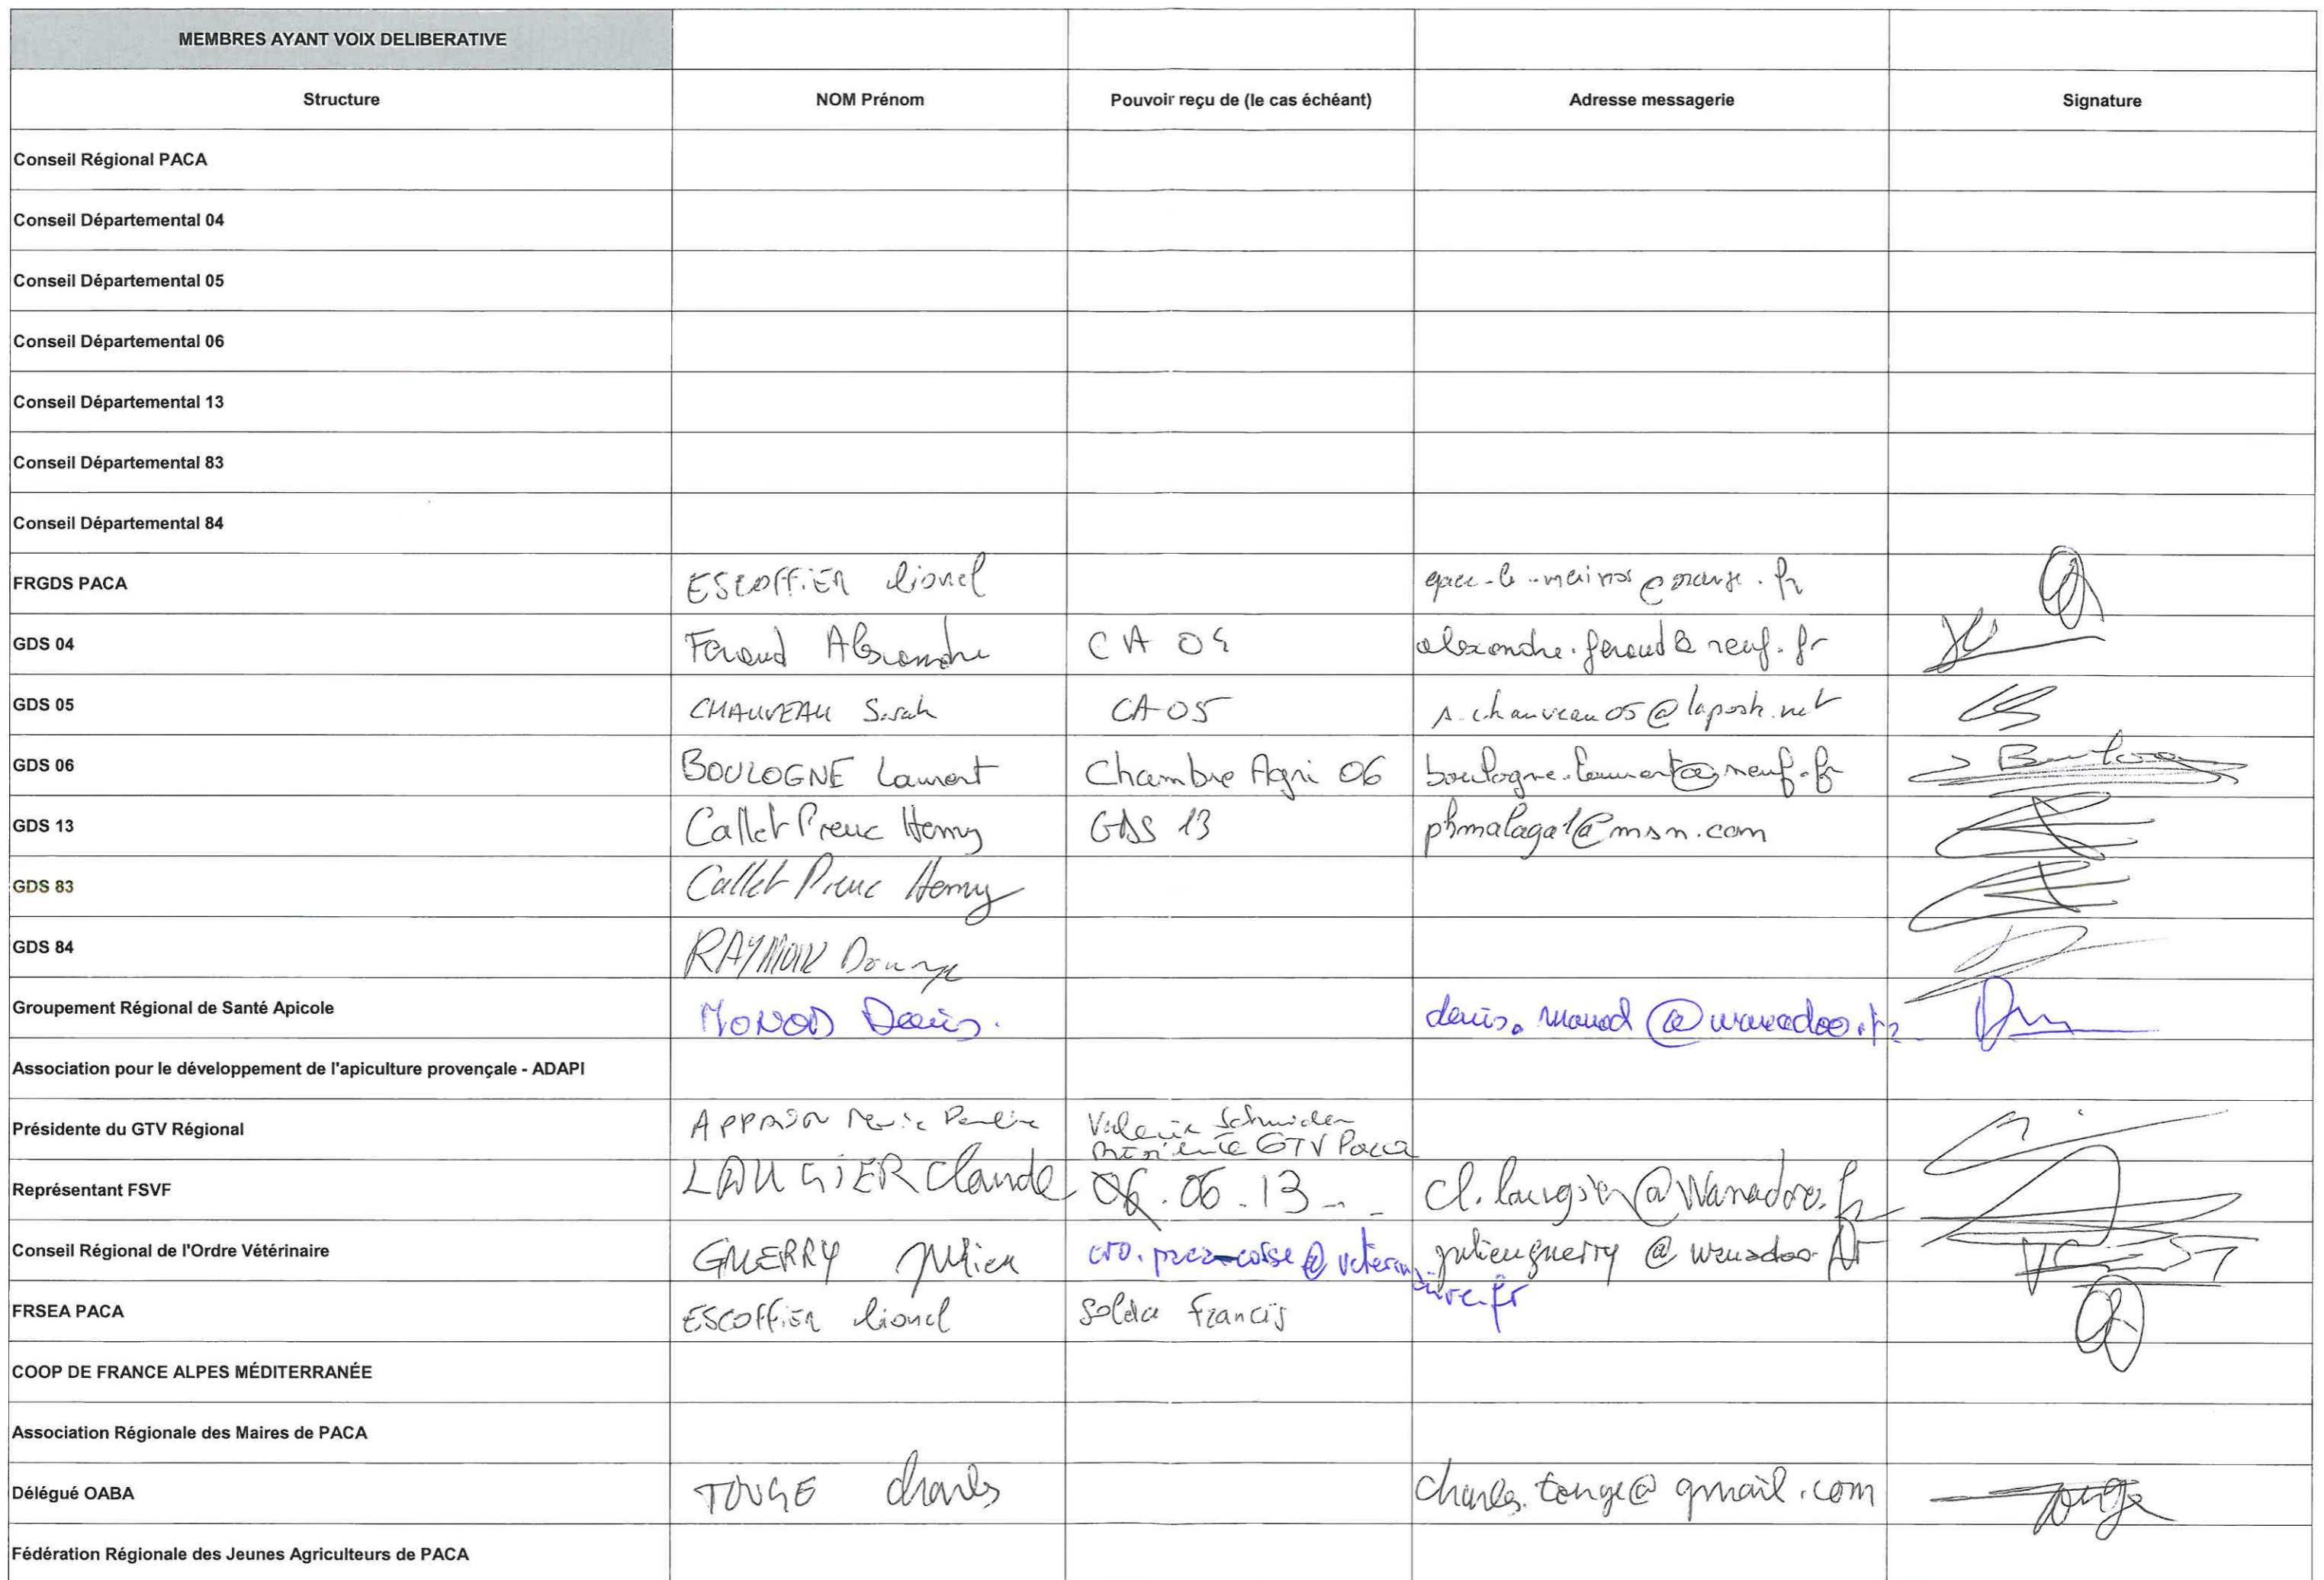 MEMBRES AYANT VOIX DELIBERATIVE
Structure NOM Prénom Pouvoir reçu de (le cas échéant) Adresse messagerie Signature
Conseil Régional PACA
Conseil Départemental 04
Conseil Départemental 05
Conseil Départemental 06
Conseil Départemental 13
Conseil Départemental 83
Conseil Départemental 84
FRGDS PACA ESCOFFIER lionel
GDS 04 Feraud Alexandre CA 04 alexandre.feraud@neuf.fr
GDS 05 CHAUVEAU Sarah CA 05 s.chauveau05@laposte.net
GDS 06 BOULOGNE Laurent Chambre Agri 06 boulogne.laurent@neuf.fr
GDS 13 Callet Pierre Henry GDS 13 phmalaga1@msn.com
GDS 83 Callet Pierre Henry
GDS 84 RAYMOND
Groupement Régional de Santé Apicole MONOD Denis. denis.monod@wanadoo.fr
Association pour le développement de l'apiculture provençale - ADAPI
Présidente du GTV Régional Valerie
GTV Paca
Représentant FSVF LAUGIER Claude 06.13 cl.laugier@wanadoo.fr
Conseil Régional de l'Ordre Vétérinaire GUERRY Julien cro.paca-corse@veterinaire.fr julienguerry@wanadoo.fr
FRSEA PACA ESCOFFIER lionel Solda Francis
COOP DE FRANCE ALPES MÉDITERRANÉE
Association Régionale des Maires de PACA
Délégué OABA TOUGE Charles charles.touge@gmail.com Touge
Fédération Régionale des Jeunes Agriculteurs de PACA